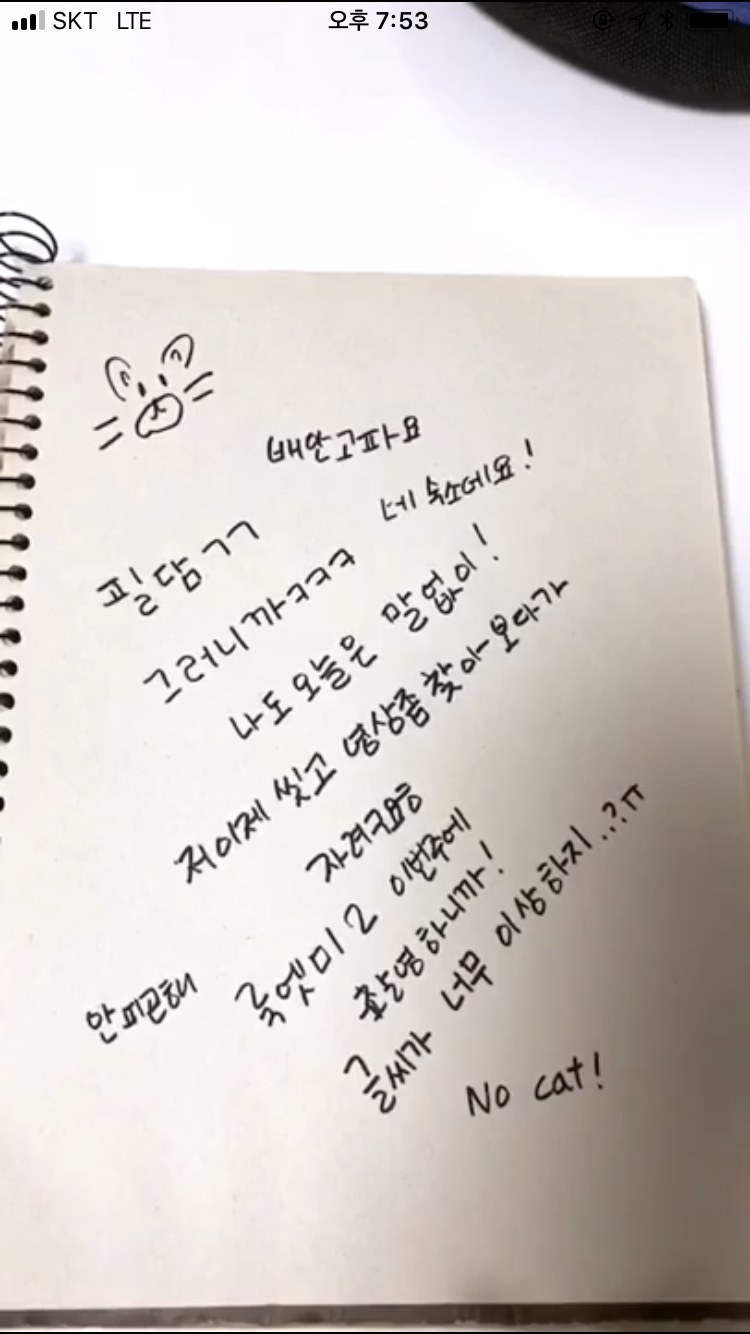 SKT LTE 오후 7:53
배안고파요
네 숙소에요!
필담ㄱㄱ
그러니까ㅋㅋㅋ
나도오늘은 말없이!
저이제 씻고 영상좀찾아보다가
자려구요
이번주에
룩앳미2
촬영하니까!
안피곤해
글씨가 너무 이상하지..?ㅠ
No cat!